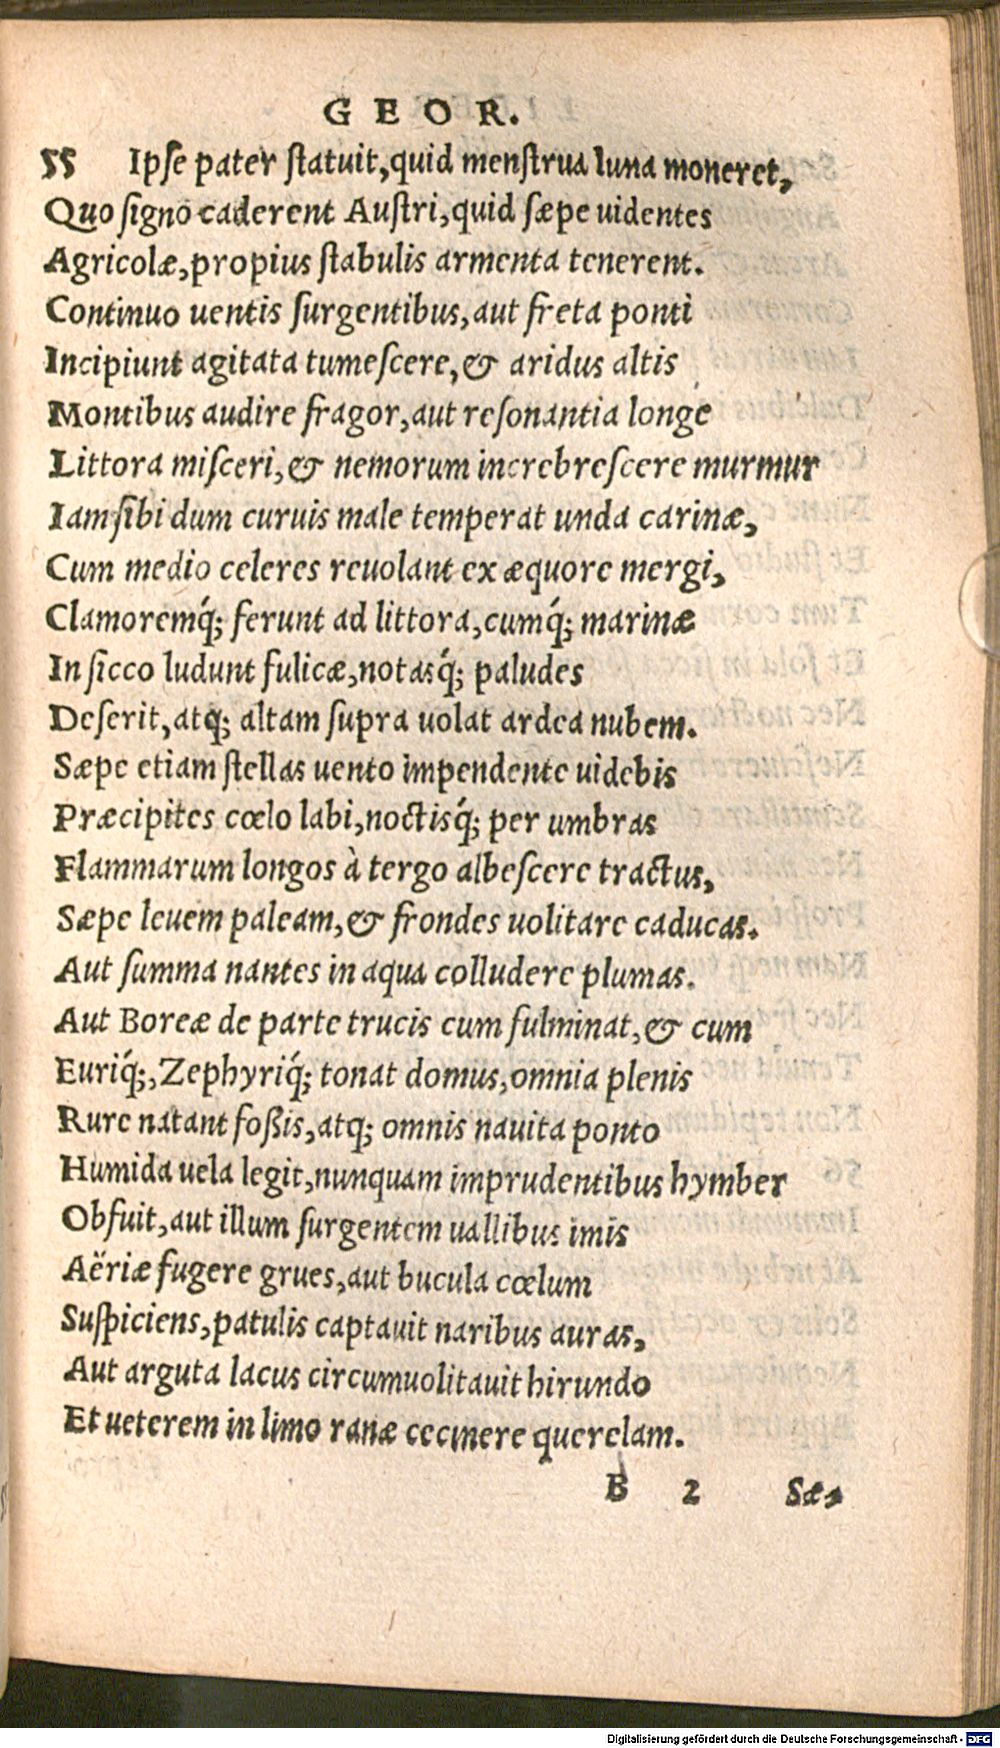 GEOR.
55 Ipſe pater ſtatuit, quid menſtrua luna moneret,
Quo ſigno caderent Auſtri, quid ſæpe uidentes
Agricolæ, propius ſtabulis armenta tenerent.
Continuo uentis ſurgentibus, aut freta ponti
Incipiunt agitata tumeſcere, & aridus altis
Montibus audire fragor, aut reſonantia longe
Littora miſceri, & nemorum increbreſcere murmur
Iam ſibi dum curuis male temperat unda carinæ,
Cum medio celeres reuolant ex æquore mergi,
Clamoremq́; ferunt ad littora, cumq́; marinæ
In ſicco ludunt fulicæ, notasq́; paludes
Deſerit, atq; altam ſupra uolat ardea nubem.
Sæpe etiam ſtellas uento impendente uidebis
Præcipites cœlo labi, noctisq́; per umbras
Flammarum longos à tergo albeſcere tractus,
Sæpe leuem paleam, & frondes uolitare caducas.
Aut ſumma nantes in aqua colludere plumas.
Aut Boreæ de parte trucis cum fulminat, & cum
Euriq́;, Zephyriq́; tonat domus, omnia plenis
Rure natant foßis, atq; omnis nauita ponto
Humida uela legit, nunquam imprudentibus hymber
Obfuit, aut illum ſurgentem uallibus imis
Aëriæ fugere grues, aut bucula cœlum
Suſpiciens, patulis captauit naribus auras,
Aut arguta lacus circumuolitauit hirundo
Et ueterem in limo ranæ cecinere querelam.
B 2 Sæ-
Digitalisierung gefördert durch die Deutsche Forschungsgemeinschaft - DFG